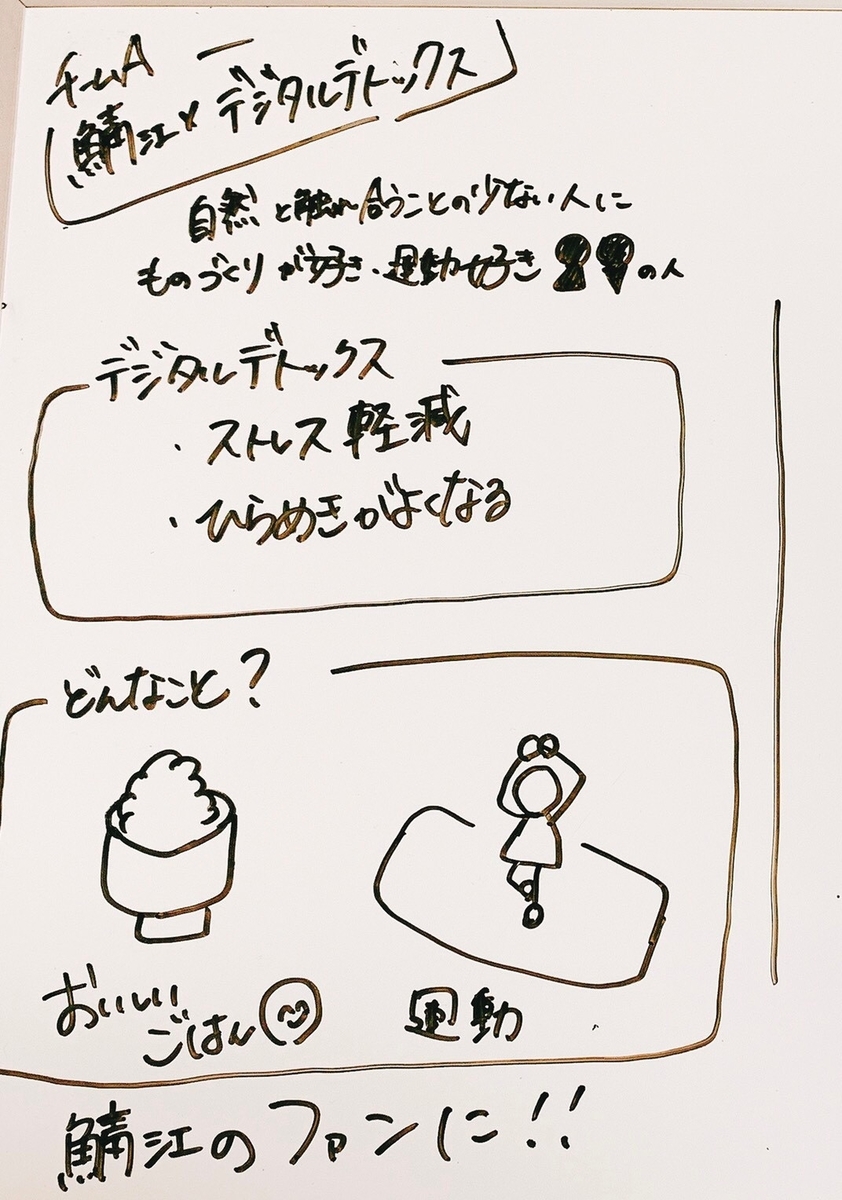 チームA
鯖江×デジタルデトックス
自然と触れ合うことの少ない人に
ものづくりが好き・運動好きの人
デジタルデトックス
・ストレス軽減
・ひらめきがよくなる
どんなこと?
おいしい
ごはん
運動
鯖江のファンに!!